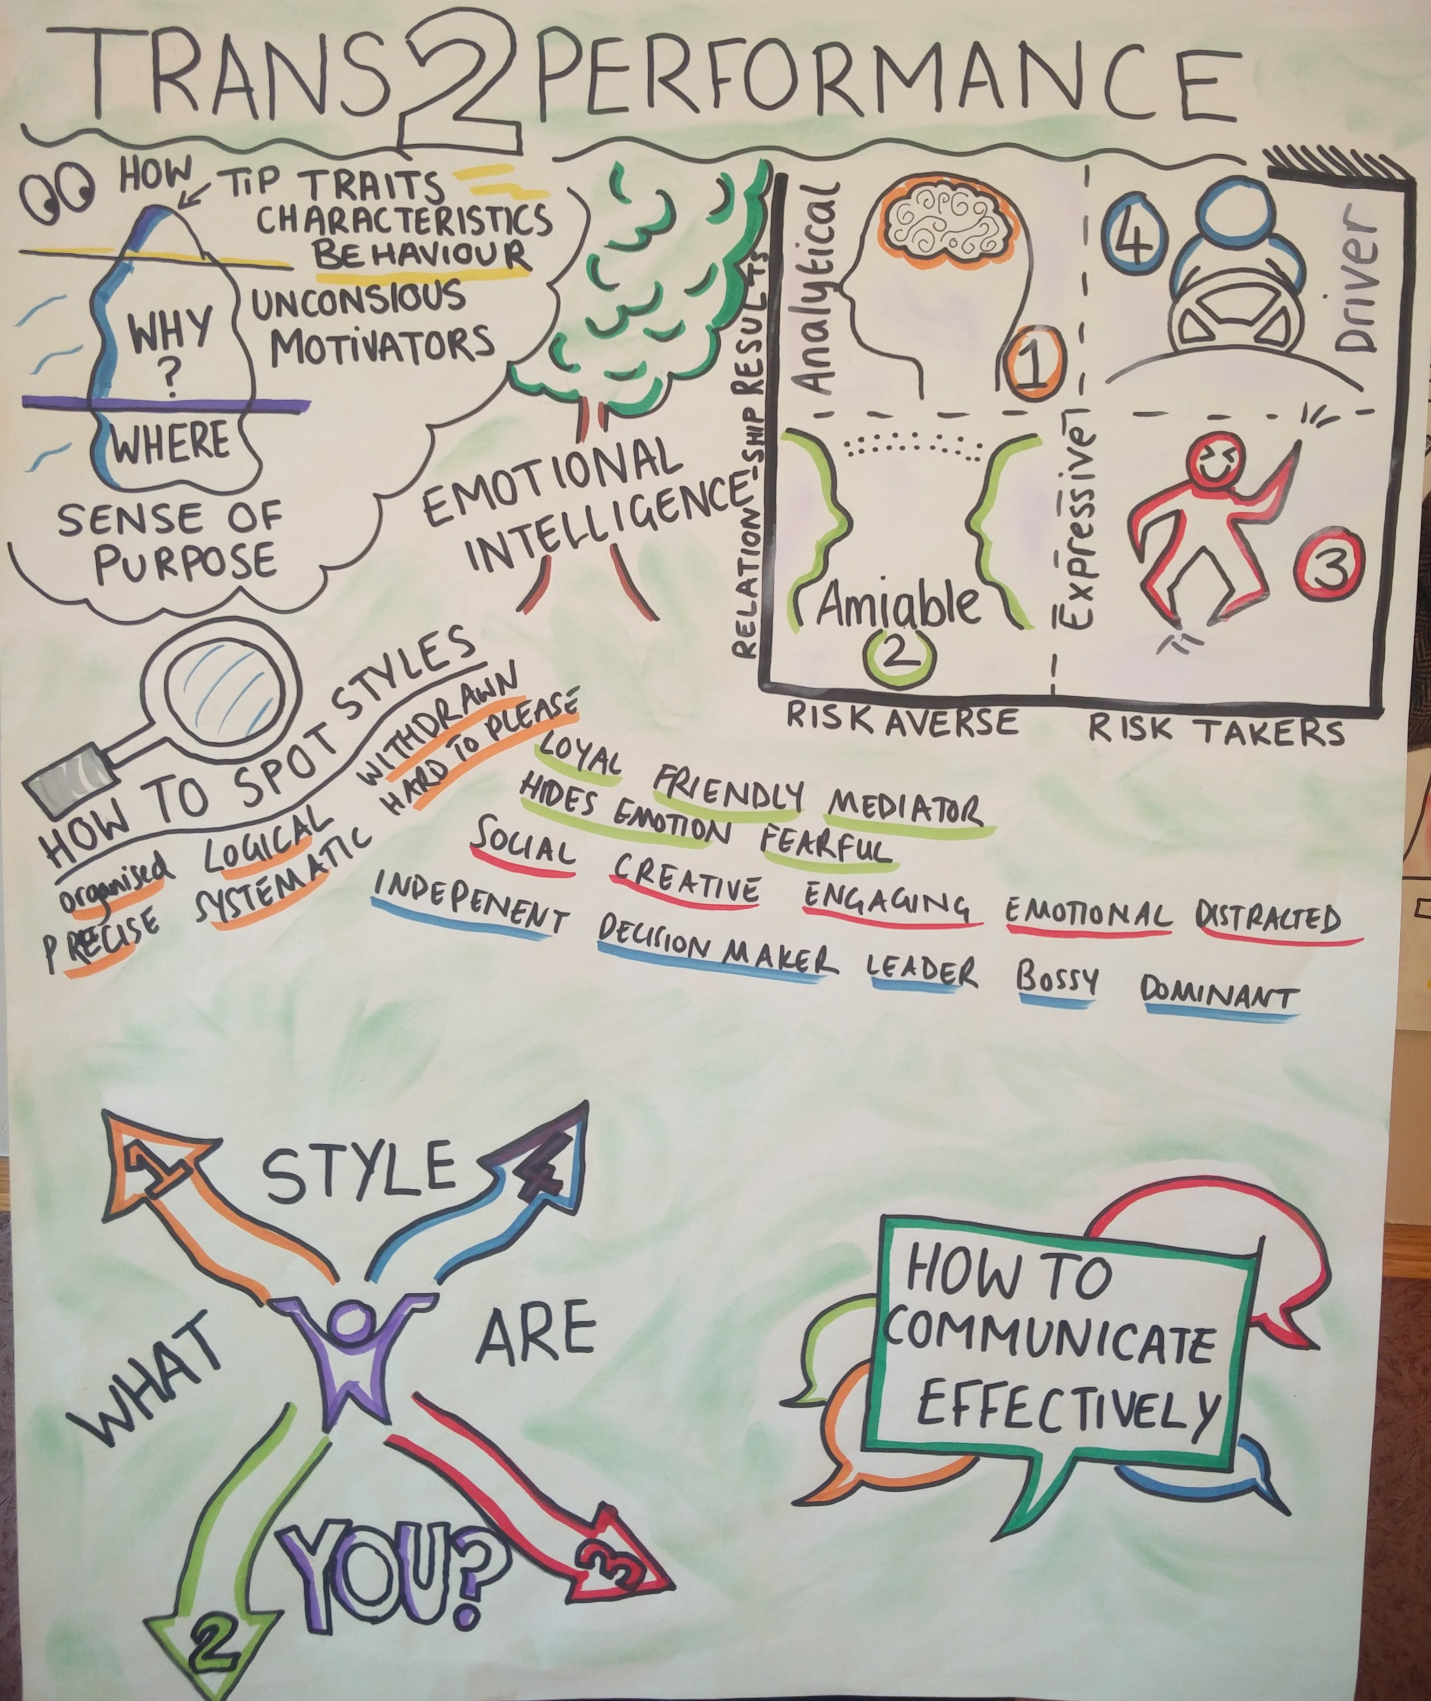 TRANS2PERFORMANCE
HOW
TIP TRAITS
CHARACTERISTICS
BEHAVIOUR
WHY
?
UNCONSIOUS
MOTIVATORS
WHERE
SENSE OF
PURPOSE
EMOTIONAL
INTELLIGENCE
RELATION-SHIP RESULTS
Analytical
1
4
Driver
Amiable
2
Expressive
3
RISK AVERSE
RISK TAKERS
HOW TO SPOT STYLES
organised
PRECISE
LOGICAL
SYSTEMATIC
WITHDRAWN
HARD TO PLEASE
LOYAL FRIENDLY MEDIATOR
HIDES EMOTION FEARFUL
SOCIAL CREATIVE ENGAGING EMOTIONAL DISTRACTED
INDEPENENT DECISION MAKER LEADER BOSSY DOMINANT
1
4
WHAT
STYLE
ARE
YOU?
2
3
HOW TO
COMMUNICATE
EFFECTIVELY